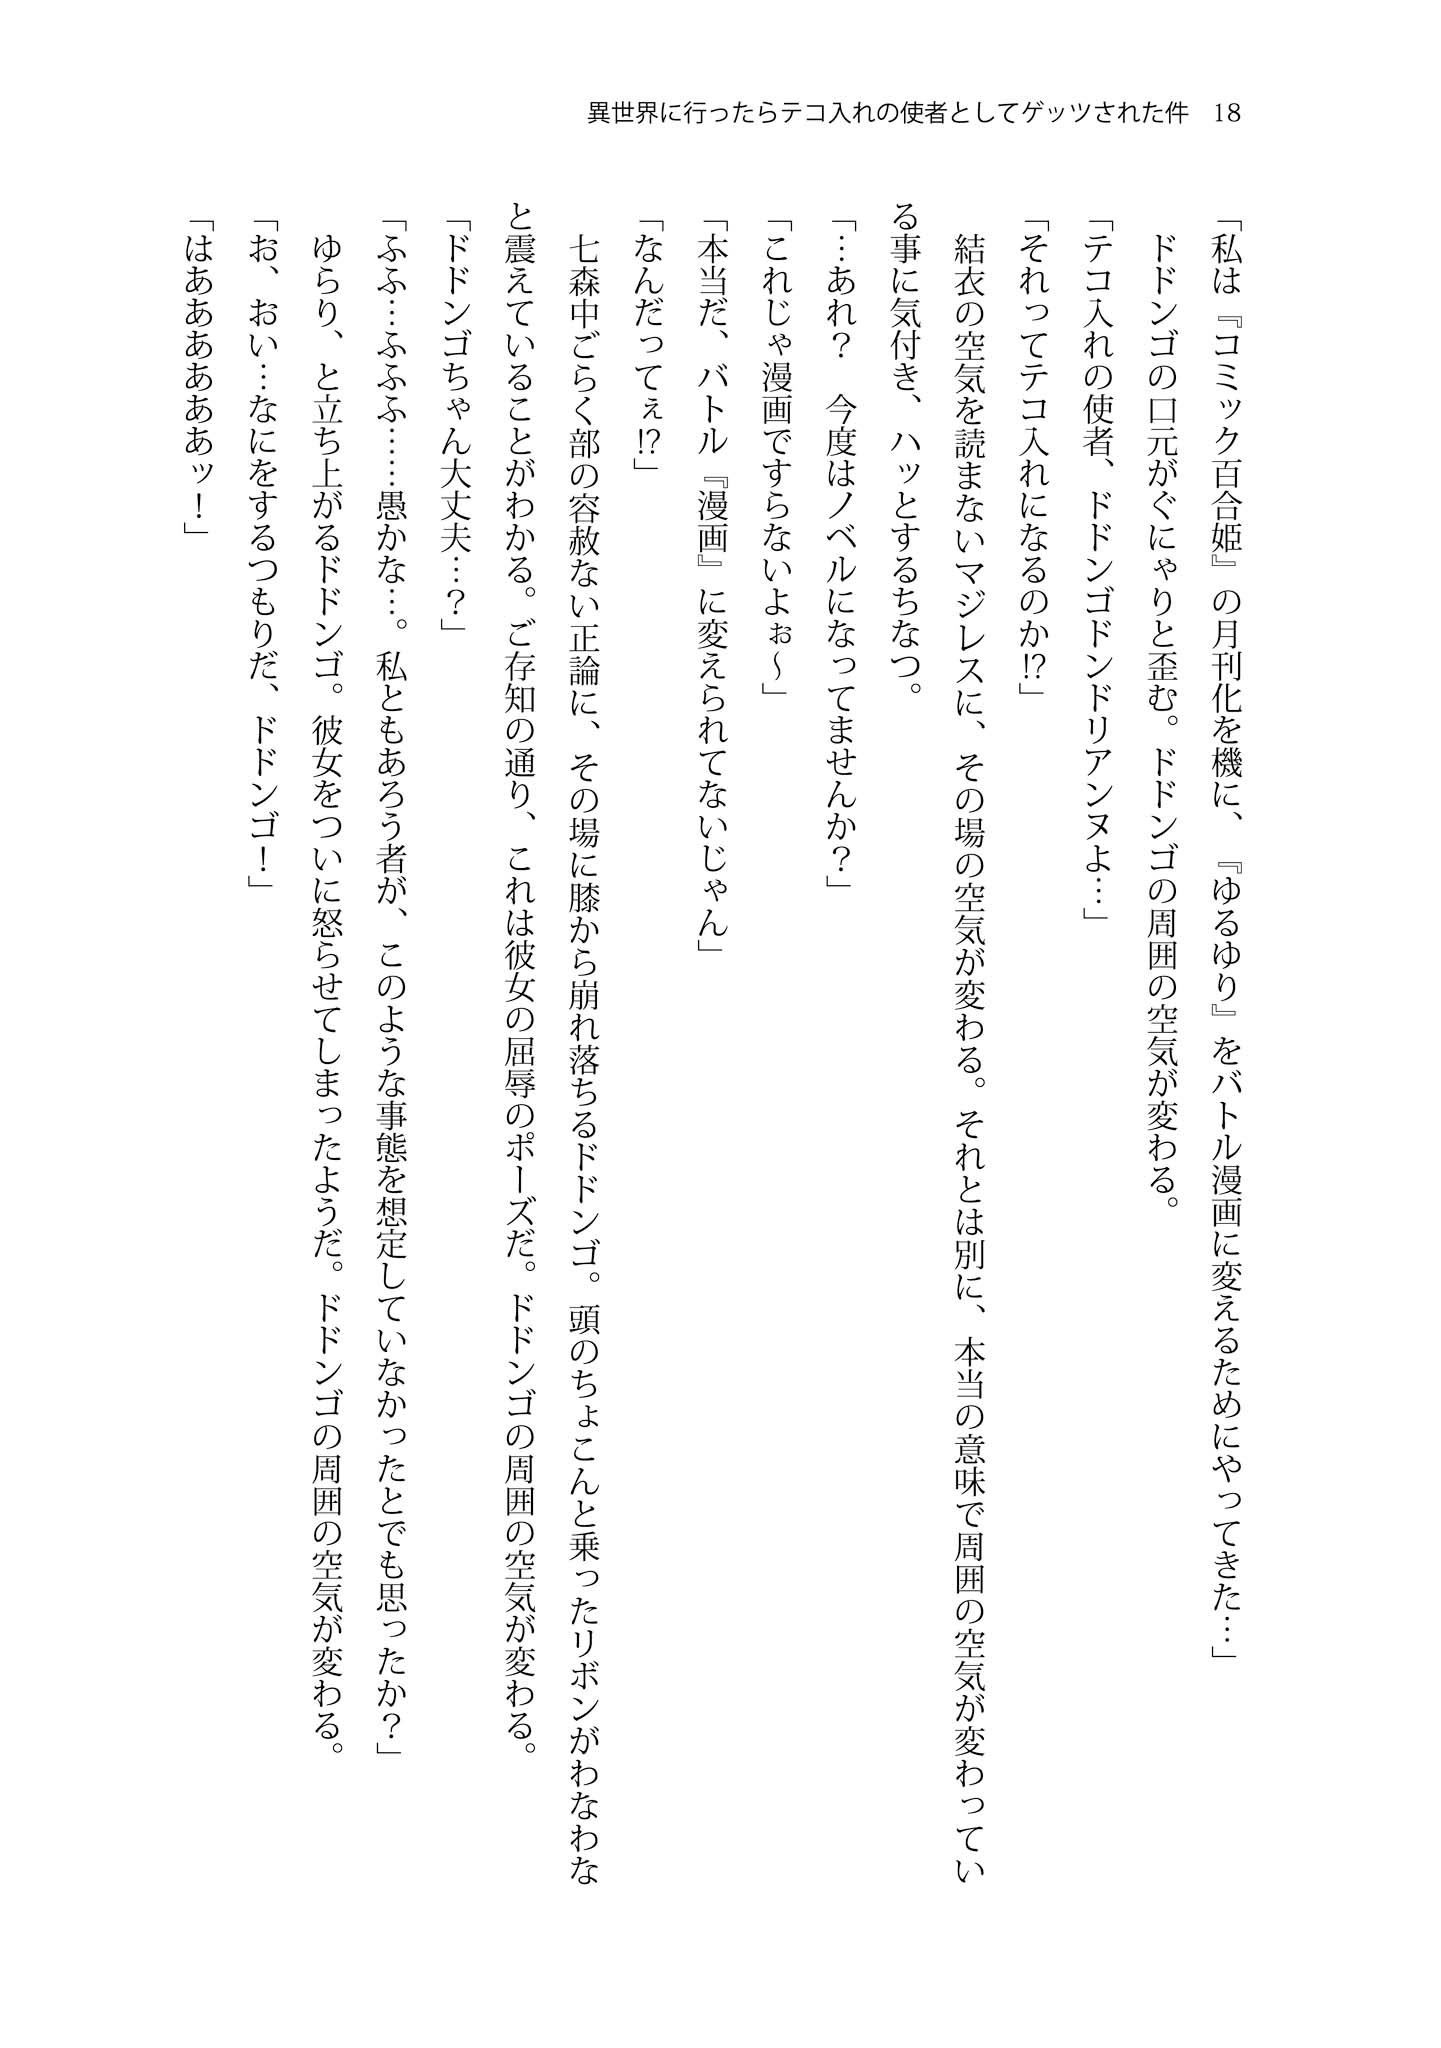 異世界に行ったらテコ入れの使者としてゲッツされた件 18
「私は『コミック百合姫』の月刊化を機に、『ゆるゆり』をバトル漫画に変えるためにやってきた…」
ドドンゴの口元がぐにゃりと歪む。ドドンゴの周囲の空気が変わる。
「テコ入れの使者、ドドンゴドンドリアンヌよ…」
「それってテコ入れになるのか!?」
結衣の空気を読まないマジレスに、その場の空気が変わる。それとは別に、本当の意味で周囲の空気が変わってい
る事に気付き、ハッとするちなつ。
「…あれ？　今度はノベルになってませんか？」
「これじゃ漫画ですらないよぉ～」
「本当だ、バトル『漫画』に変えられてないじゃん」
「なんだってぇ!?」
七森中ごらく部の容赦ない正論に、その場に膝から崩れ落ちるドドンゴ。頭のちょこんと乗ったリボンがわなわな
と震えていることがわかる。ご存知の通り、これは彼女の屈辱のポーズだ。ドドンゴの周囲の空気が変わる。
「ドドンゴちゃん大丈夫…？」
「ふふ…ふふふ……愚かな…。私ともあろう者が、このような事態を想定していなかったとでも思ったか？」
ゆらり、と立ち上がるドドンゴ。彼女をついに怒らせてしまったようだ。ドドンゴの周囲の空気が変わる。
「お、おい…なにをするつもりだ、ドドンゴ！」
「はああああああッ！」